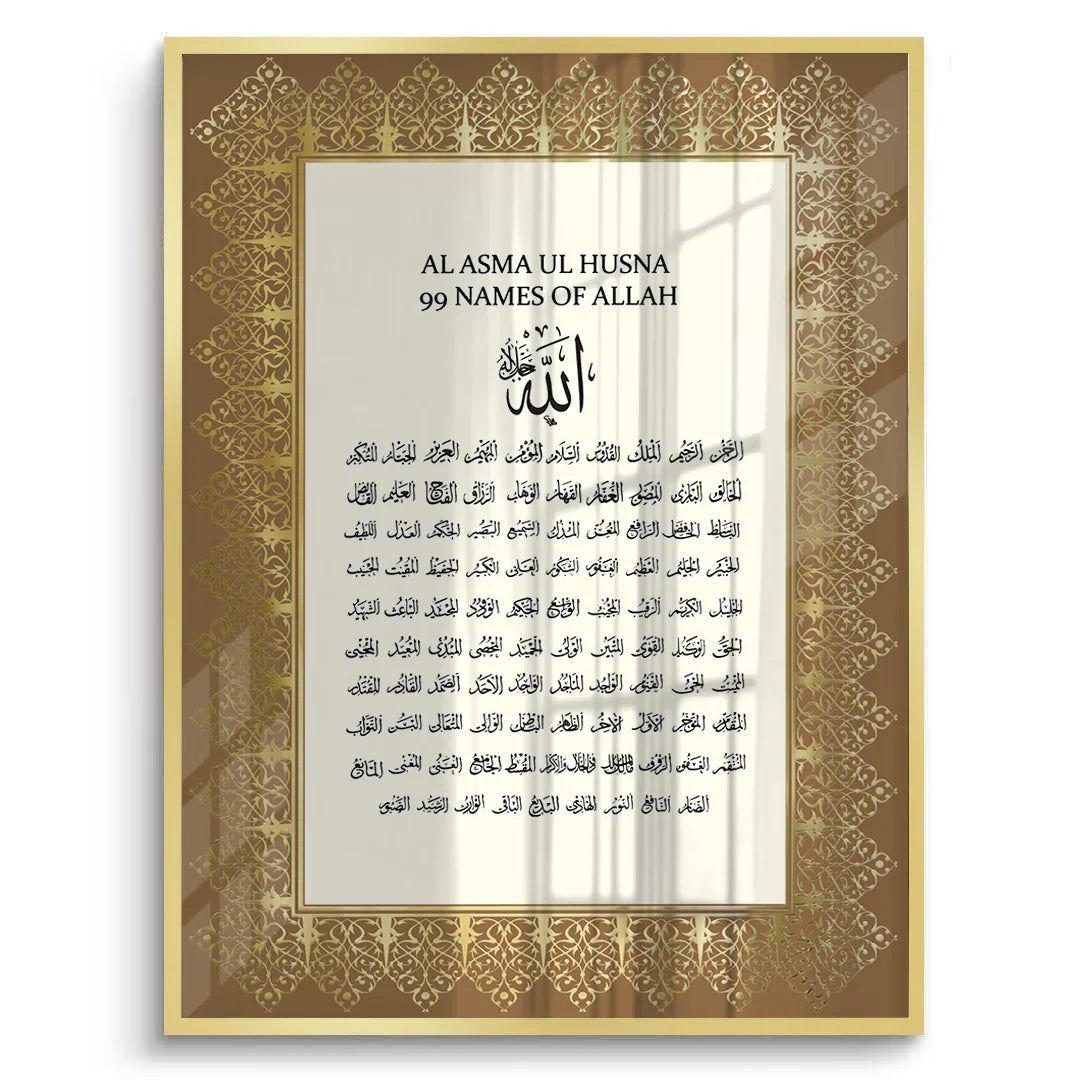 AL ASMA UL HUSNA
99 NAMES OF ALLAH
الله جل جلاله
الرحمن الرحيم الملك القدوس السلام المؤمن المهيمن العزيز الجبار المتكبر
الخالق البارئ المصور الغفار القهار الوهاب الرزاق الفتاح العليم القابض
الباسط الخافض الرافع المعز المذل السميع البصير الحكم العدل اللطيف
الخبير الحليم العظيم الغفور الشكور العلي الكبير الحفيظ المقيت الحسيب
الجليل الكريم الرقيب المجيب الواسع الحكيم الودود المجيد الباعث الشهيد
الحق الوكيل القوي المتين الولي الحميد المحصي المبدئ المعيد المحيي
المميت الحي القيوم الواجد الماجد الواحد الاحد الصمد القادر المقتدر
المقدم المؤخر الأول الآخر الظاهر الباطن الوالي المتعالي البر التواب
المنتقم العفو الرؤوف مالك الملك ذو الجلال والإكرام المقسط الجامع الغني المغني المانع
الضار النافع النور الهادي البديع الباقي الوارث الرشيد الصبور